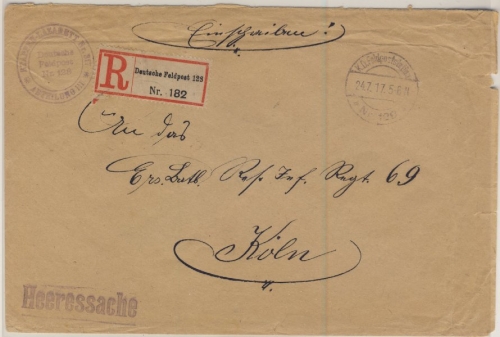 Einschreiben!
Deutsche
Feldpost
R
Deutsche Feldpost 128
Nr. 182
24.7.17. 5-6 N
Nr. 128
An das
Ers. Batl. Res. Inf. Regt. 69
Köln
Heeressache